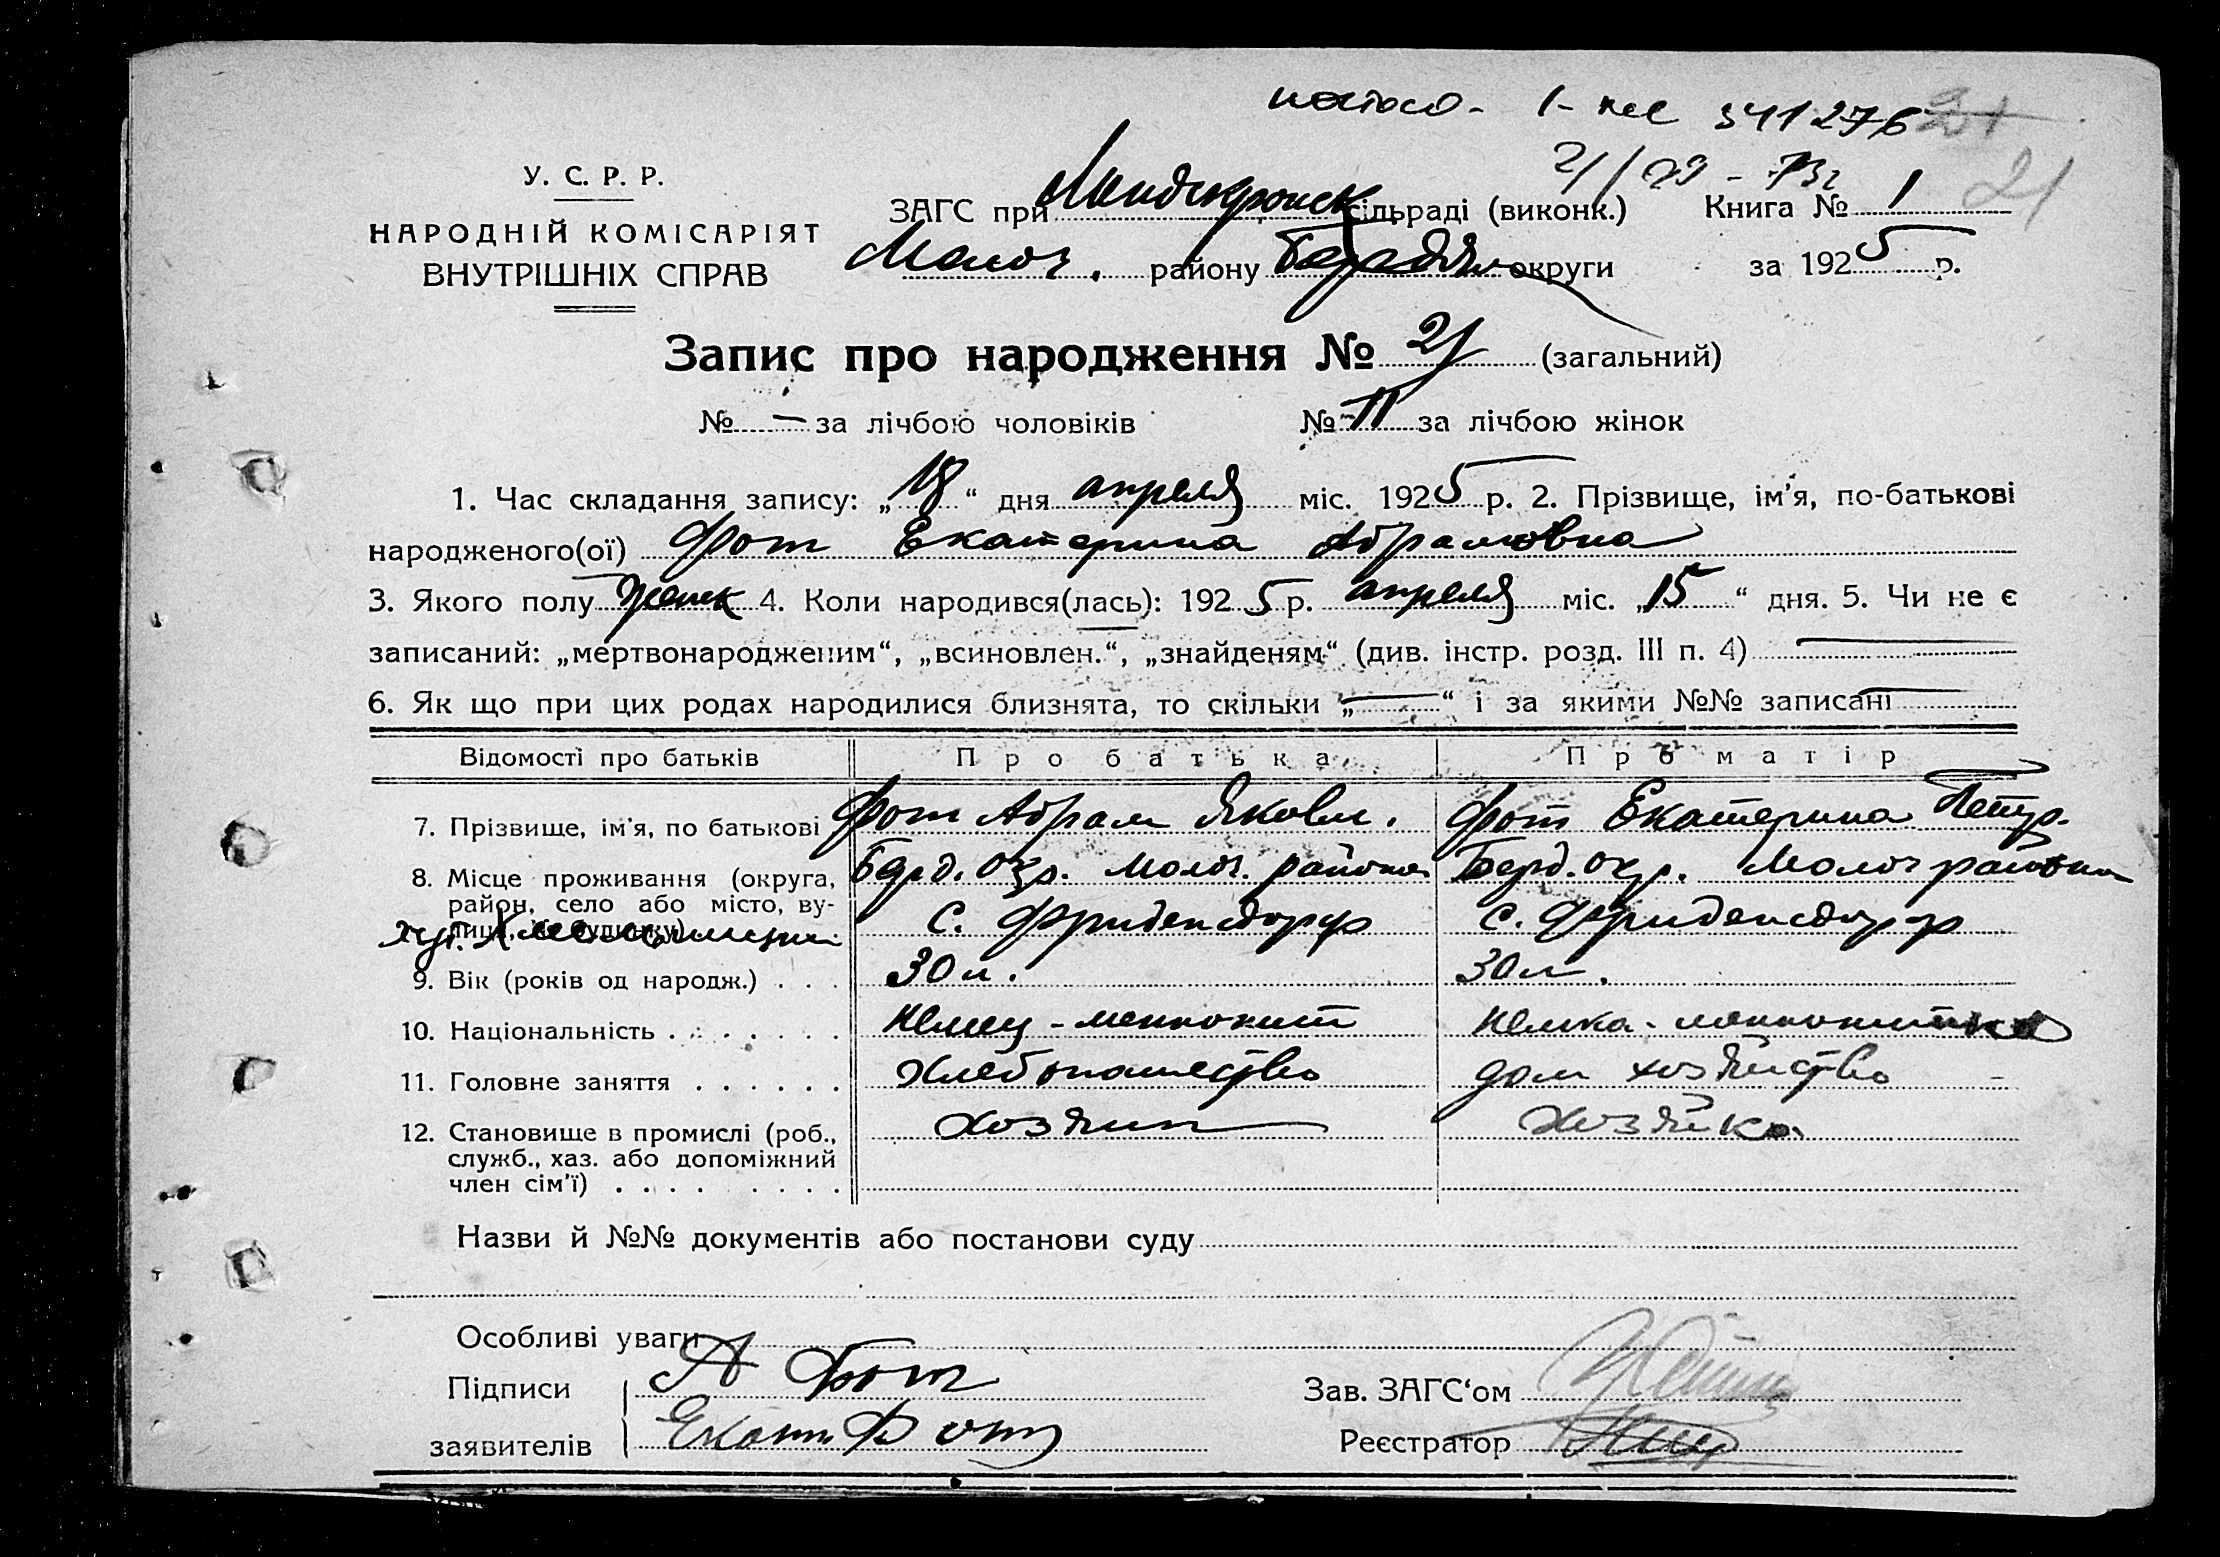 1- 541276 21
21
У. С. Р. Р.
НАРОДНІЙ КОМІСАРІЯТ
ВНУТРІШНІХ СПРАВ
ЗАГС при Ландскронск сільраді (виконк.) Книга № 1
Молоч. району Бердян округи за 1925 р.
Запис про народження № 21 (загальний)
№ — за лічбою чоловіків № 11 за лічбою жінок
1. Час складання запису: „18“ дня апреля міс. 1925 р. 2. Прізвище, ім'я, по-батькові
народженого(ої) Фот Екатерина Абрамовна
3. Якого полу женск 4. Коли народився(лась): 1925 р. апреля міс. „15“ дня. 5. Чи не є
записаний: „мертвонародженим“, „всиновлен.“, „знайденям“ (див. інстр. розд. III п. 4) —
6. Як що при цих родах народилися близнята, то скільки „—“ і за якими №№ записані —
Відомості про батьків Про батька Про матір
7. Прізвище, ім'я, по батькові Фот Абрам Яковл. Фот Екатерина Петр.
8. Місце проживання (округа, Берд. окр. Молоч. района Берд. окр. Молоч района
район, село або місто, ву- с. Фриденсдорф с. Фриденсдорф
хут.
9. Вік (років од народж.) . . . 30 л. 30 л.
10. Національність . . . . . . . Немец - меннонит Немка - меннонитка
11. Головне заняття . . . . . . Хлебопашество дом хозяйство
12. Становище в промислі (роб., Хозяин Хозяйка
служб., хаз. або допоміжний
член сім'ї) . . . . . . . .
Назви й №№ документів або постанови суду
Особливі уваги
Підписи А Фот Зав. ЗАГС'ом
заявителів Екат Фот Реєстратор